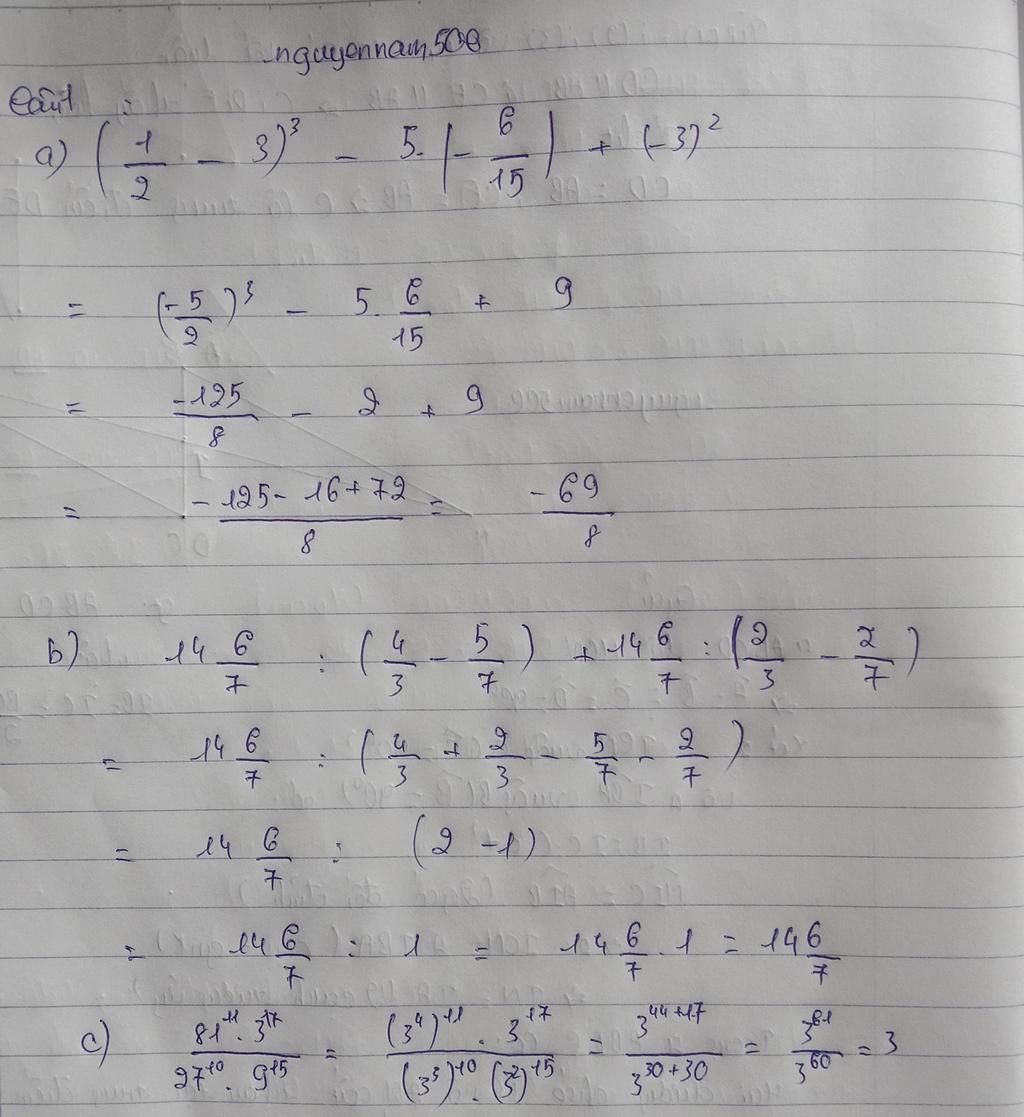 nguyennam508
Câu1 :
a) (1/2 - 3)³ - 5.|-6/15| + (-3)²
= (-5/2)³ - 5.6/15 + 9
= -125/8 - 2 + 9
= -125-16+72/8 = -69/8
b) 14 6/7 : (4/3 - 5/7) + 14 6/7 : (2/3 - 2/7)
= 14 6/7 : (4/3 + 2/3 - 5/7 - 2/7)
= 14 6/7 : (2-1)
= 14 6/7 : 1 = 14 6/7 . 1 = 14 6/7
c) 81¹¹.3¹⁷/27¹⁰.9¹⁵ = (3⁴)¹¹.3¹⁷/(3³)¹⁰.(3²)¹⁵ = 3⁴⁴⁺¹⁷/3³⁰⁺³⁰ = 3⁶¹/3⁶⁰ = 3